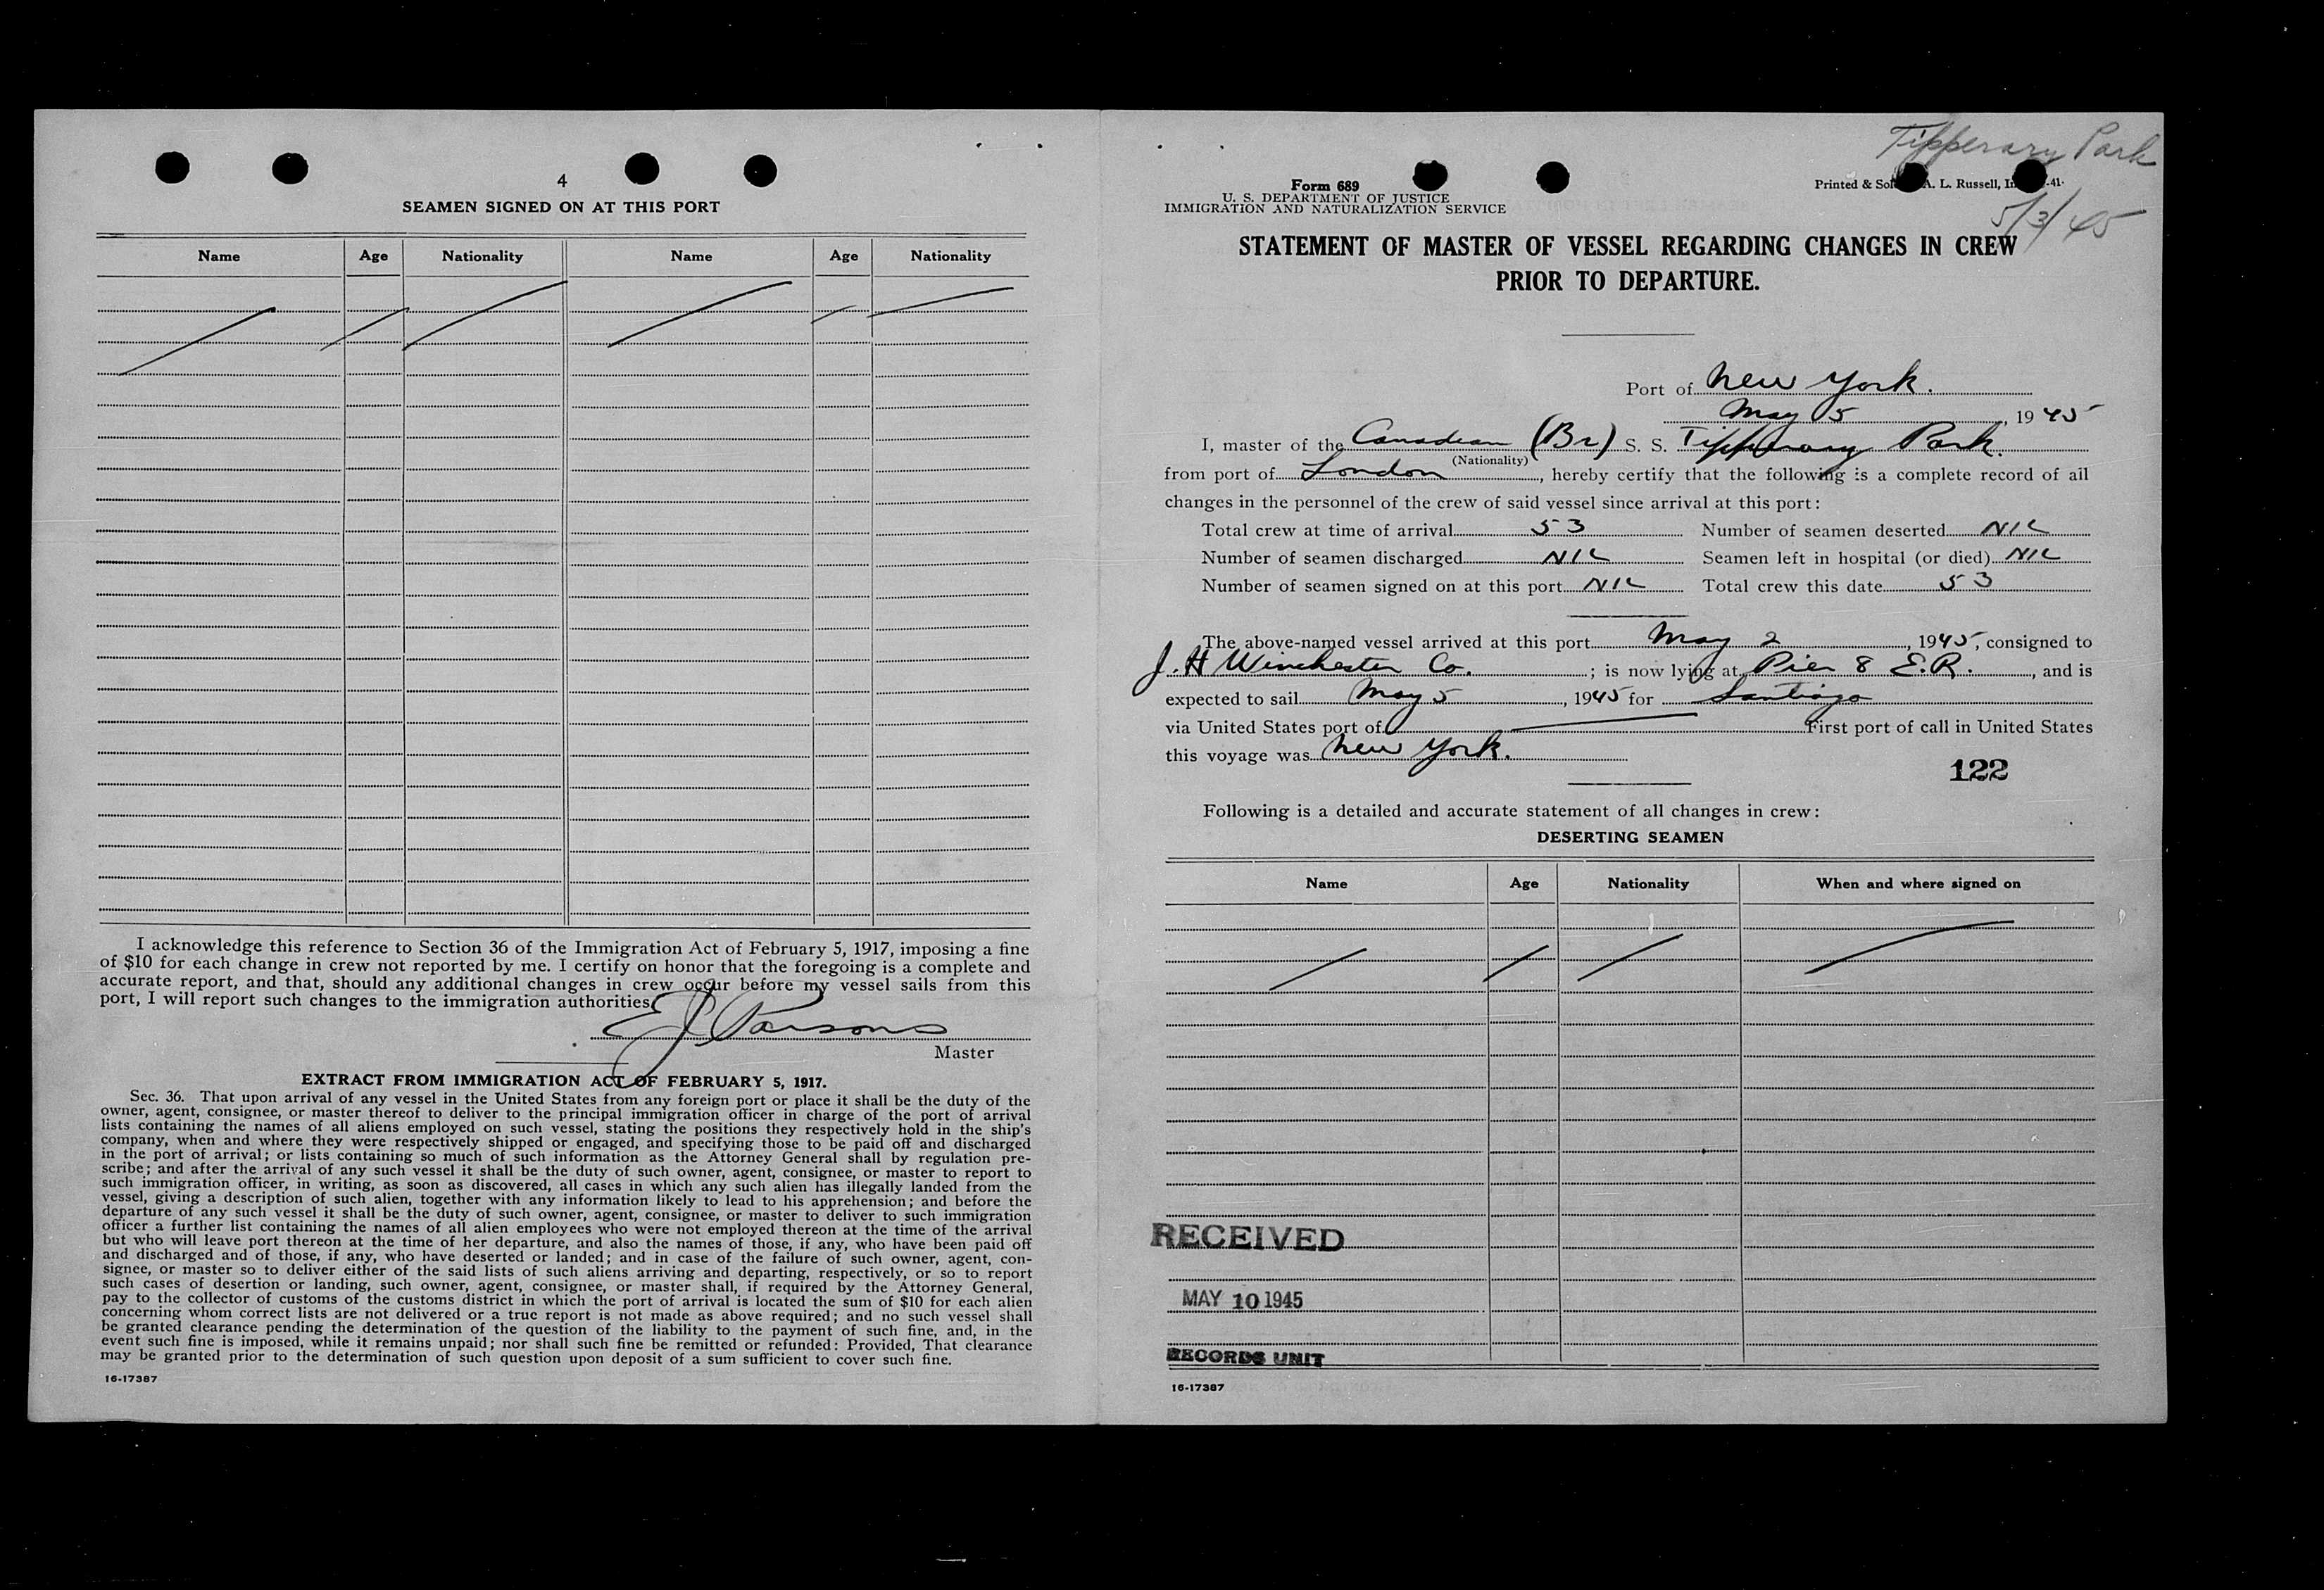 4
SEAMEN SIGNED ON AT THIS PORT
Name Age Nationality Name Age Nationality
I acknowledge this reference to Section 36 of the Immigration Act of February 5, 1917, imposing a fine
of $10 for each change in crew not reported by me. I certify on honor that the foregoing is a complete and
accurate report, and that, should any additional changes in crew occur before my vessel sails from this
port, I will report such changes to the immigration authorities.
E J Parsons
Master
EXTRACT FROM IMMIGRATION ACT OF FEBRUARY 5, 1917.
Sec. 36. That upon arrival of any vessel in the United States from any foreign port or place it shall be the duty of the
owner, agent, consignee, or master thereof to deliver to the principal immigration officer in charge of the port of arrival
lists containing the names of all aliens employed on such vessel, stating the positions they respectively hold in the ship's
company, when and where they were respectively shipped or engaged, and specifying those to be paid off and discharged
in the port of arrival; or lists containing so much of such information as the Attorney General shall by regulation pre-
scribe; and after the arrival of any such vessel it shall be the duty of such owner, agent, consignee, or master to report to
such immigration officer, in writing, as soon as discovered, all cases in which any such alien has illegally landed from the
vessel, giving a description of such alien, together with any information likely to lead to his apprehension; and before the
departure of any such vessel it shall be the duty of such owner, agent, consignee, or master to deliver to such immigration
officer a further list containing the names of all alien employees who were not employed thereon at the time of the arrival
but who will leave port thereon at the time of her departure, and also the names of those, if any, who have been paid off
and discharged and of those, if any, who have deserted or landed; and in case of the failure of such owner, agent, con-
signee, or master so to deliver either of the said lists of such aliens arriving and departing, respectively, or so to report
such cases of desertion or landing, such owner, agent, consignee, or master shall, if required by the Attorney General,
pay to the collector of customs of the customs district in which the port of arrival is located the sum of $10 for each alien
concerning whom correct lists are not delivered or a true report is not made as above required; and no such vessel shall
be granted clearance pending the determination of the question of the liability to the payment of such fine, and, in the
event such fine is imposed, while it remains unpaid; nor shall such fine be remitted or refunded: Provided, That clearance
may be granted prior to the determination of such question upon deposit of a sum sufficient to cover such fine.
16-17387
Tipperary Park
5/3/45
Form 689
U. S. DEPARTMENT OF JUSTICE
IMMIGRATION AND NATURALIZATION SERVICE
Printed & A. L. Russell,
STATEMENT OF MASTER OF VESSEL REGARDING CHANGES IN CREW
PRIOR TO DEPARTURE.
Port of New York.
May 5, 1945
I, master of the Canadian (Br) S. S. Tipperary Park.
(Nationality)
from port of London, hereby certify that the following is a complete record of all
changes in the personnel of the crew of said vessel since arrival at this port:
Total crew at time of arrival 53 Number of seamen deserted NIL
Number of seamen discharged NIL Seamen left in hospital (or died) NIL
Number of seamen signed on at this port NIL Total crew this date 53
The above-named vessel arrived at this port May 2, 1945, consigned to
J. H Winchester Co.; is now lying at Pier 8 E.R., and is
expected to sail May 5, 1945 for Santiago
via United States port of First port of call in United States
this voyage was New York.
122
Following is a detailed and accurate statement of all changes in crew:
DESERTING SEAMEN
Name Age Nationality When and where signed on
RECEIVED
MAY 10 1945
RECORDS UNIT
16-17387